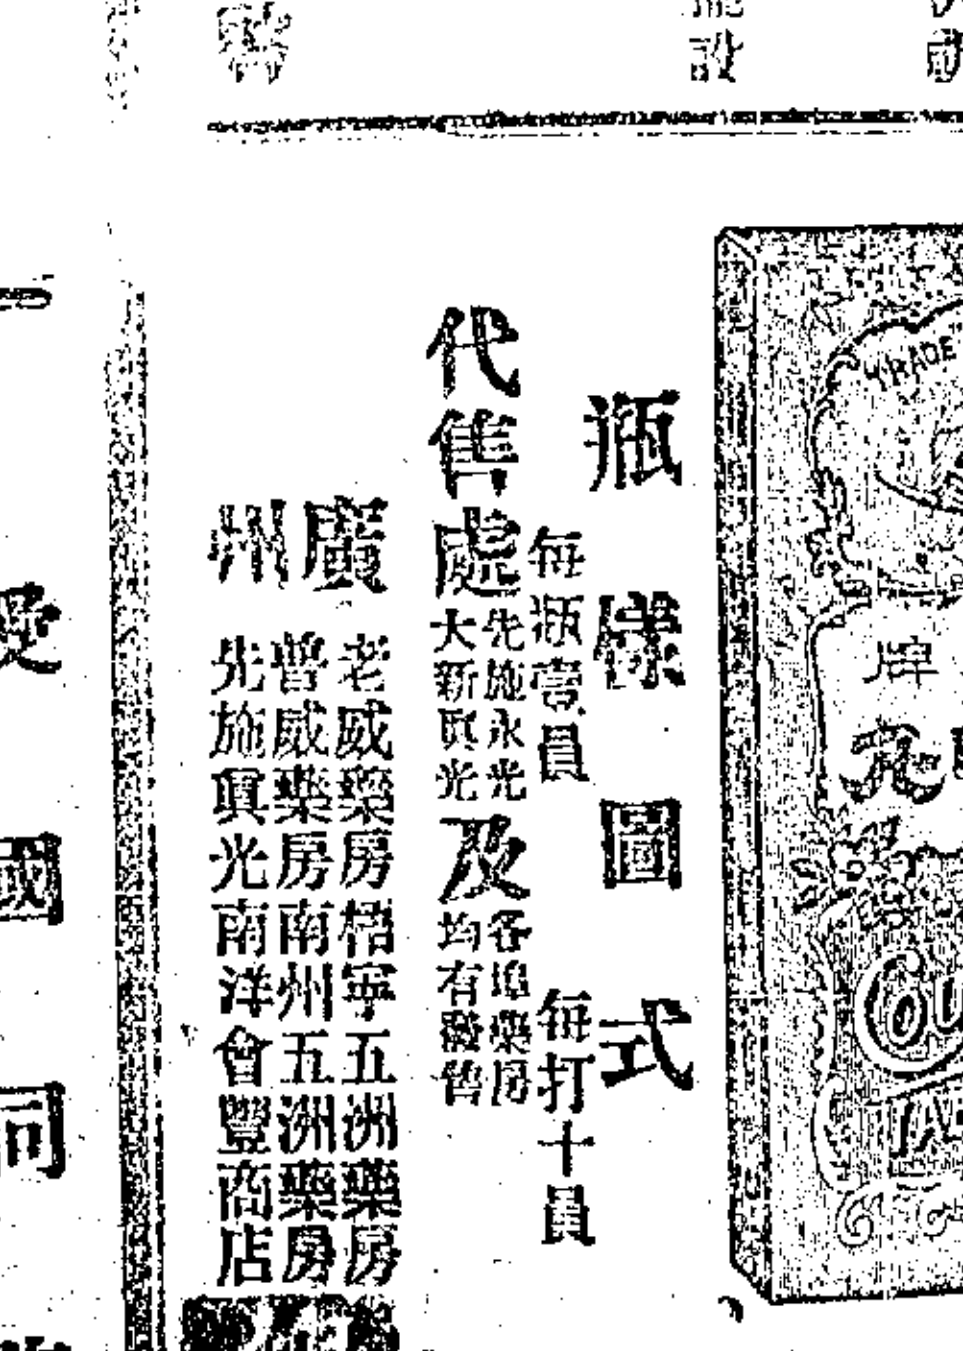 設
TRADE
牌
瓶樣圖式
每瓶壹員
每打十員
代售處
先施永光
大新眞光
及
各埠藥房
均有發售
廣州
老威藥房梧寧五洲藥房
普威藥房南州五洲藥房
先施眞光南洋會豐商店
國
同